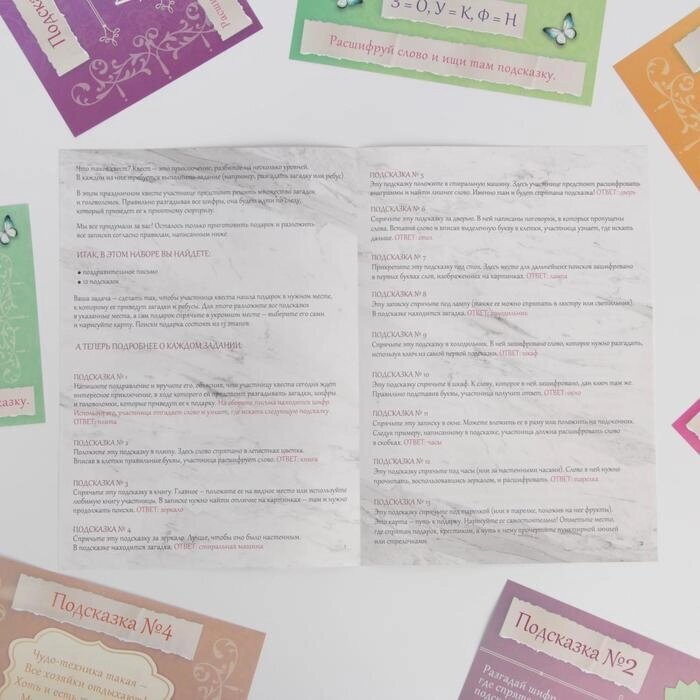 Подсказ
Расшиф
З = О, У = К, Ф = Н
Расшифруй слово и ищи там подсказку.
Что такое квест? Квест – это приключение, разбитое на несколько уровней.
В каждом из них требуется выполнить задание (например, разгадать загадку или ребус).
В этом праздничном квесте участнице предстоит решить множество загадок
и головоломок. Правильно разгадывая все шифры, она будет идти по следу,
который приведет ее к приятному сюрпризу.
Мы все придумали за вас! Осталось только приготовить подарок и разложить
все записки согласно правилам, написанным ниже.
ИТАК, В ЭТОМ НАБОРЕ ВЫ НАЙДЕТЕ:
• поздравительное письмо
• 12 подсказок
Ваша задача – сделать так, чтобы участница квеста нашла подарок в нужном месте,
к которому ее приведут загадки и ребусы. Для этого разложите все подсказки
в указанные места, а сам подарок спрячьте в укромном месте – выберите его сами
и нарисуйте карту. Поиски подарка состоят из 13 этапов.
А ТЕПЕРЬ ПОДРОБНЕЕ О КАЖДОМ ЗАДАНИИ:
ПОДСКАЗКА № 1
Напишите поздравление и вручите его, объяснив, что участницу квеста сегодня ждет
интересное приключение, в ходе которого ей предстоит разгадывать загадки, шифры
и головоломки, которые приведут ее к подарку. На обороте письма находится шифр.
Используя его, участница отгадает слово и узнает, где искать следующую подсказку.
ОТВЕТ: плита
ПОДСКАЗКА № 2
Положите эту подсказку в плиту. Здесь слово спрятано в лепестках цветка.
Вписав в клетки правильные буквы, участница расшифрует слово. ОТВЕТ: книга
ПОДСКАЗКА № 3
Спрячьте эту подсказку в книгу. Главное – положите ее на видное место или используйте
любимую книгу участницы. В записке нужно найти отличие на картинках – там и нужно
продолжать поиски. ОТВЕТ: зеркало
ПОДСКАЗКА № 4
Спрячьте эту подсказку за зеркало. Лучше, чтобы оно было настенным.
В подсказке находится загадка. ОТВЕТ: стиральная машина
1
ПОДСКАЗКА № 5
Эту подсказку положите в стиральную машину. Здесь участнице предстоит расшифровать
анаграммы и найти лишнее слово. Именно там и будет спрятана подсказка! ОТВЕТ: дверь
ПОДСКАЗКА № 6
Спрячьте эту подсказку за дверью. В ней написаны поговорки, в которых пропущены
слова. Вставив слово и вписав выделенную букву в клетки, участница узнает, где искать
дальше. ОТВЕТ: стол
ПОДСКАЗКА № 7
Прикрепите эту подсказку под стол. Здесь место для дальнейших поисков зашифровано
в первых буквах слов, изображенных на картинках. ОТВЕТ: лампа
ПОДСКАЗКА № 8
Эту записку спрячьте под лампу (также ее можно спрятать в люстру или светильник).
В подсказке находится загадка. ОТВЕТ: холодильник
ПОДСКАЗКА № 9
Спрячьте эту подсказку в холодильник. В ней зашифровано слово, которое нужно разгадать,
используя ключ из самой первой подсказки. ОТВЕТ: шкаф
ПОДСКАЗКА № 10
Эту подсказку спрячьте в шкаф. К слову, которое в ней зашифровано, дан ключ там же.
Правильно подставив буквы, участница получит ответ. ОТВЕТ: окно
ПОДСКАЗКА № 11
Спрячьте эту записку в окне. Можете вложить ее в раму или положить на подоконник.
Следуя примеру, написанному в подсказке, участница должна расшифровать слово
в скобках. ОТВЕТ: часы
ПОДСКАЗКА № 12
Эту подсказку спрячьте под часы (или за настенными часами). Слово в ней нужно
прочитать, воспользовавшись зеркалом, и расшифровать. ОТВЕТ: тарелка
ПОДСКАЗКА № 13
Эту подсказку спрячьте под тарелкой (или в тарелке, положив на нее фрукты).
Это карта – путь к подарку. Нарисуйте ее самостоятельно! Отметьте место,
где спрятан подарок, крестиком, а путь к нему прочертите пунктирной линией
или стрелочками.
2
сказку.
Подсказка №4
Чудо-техника такая –
Все хозяйки отдыхают!
Хоть и есть
Подсказка №2
Разгадай шифр
где спрята
подск